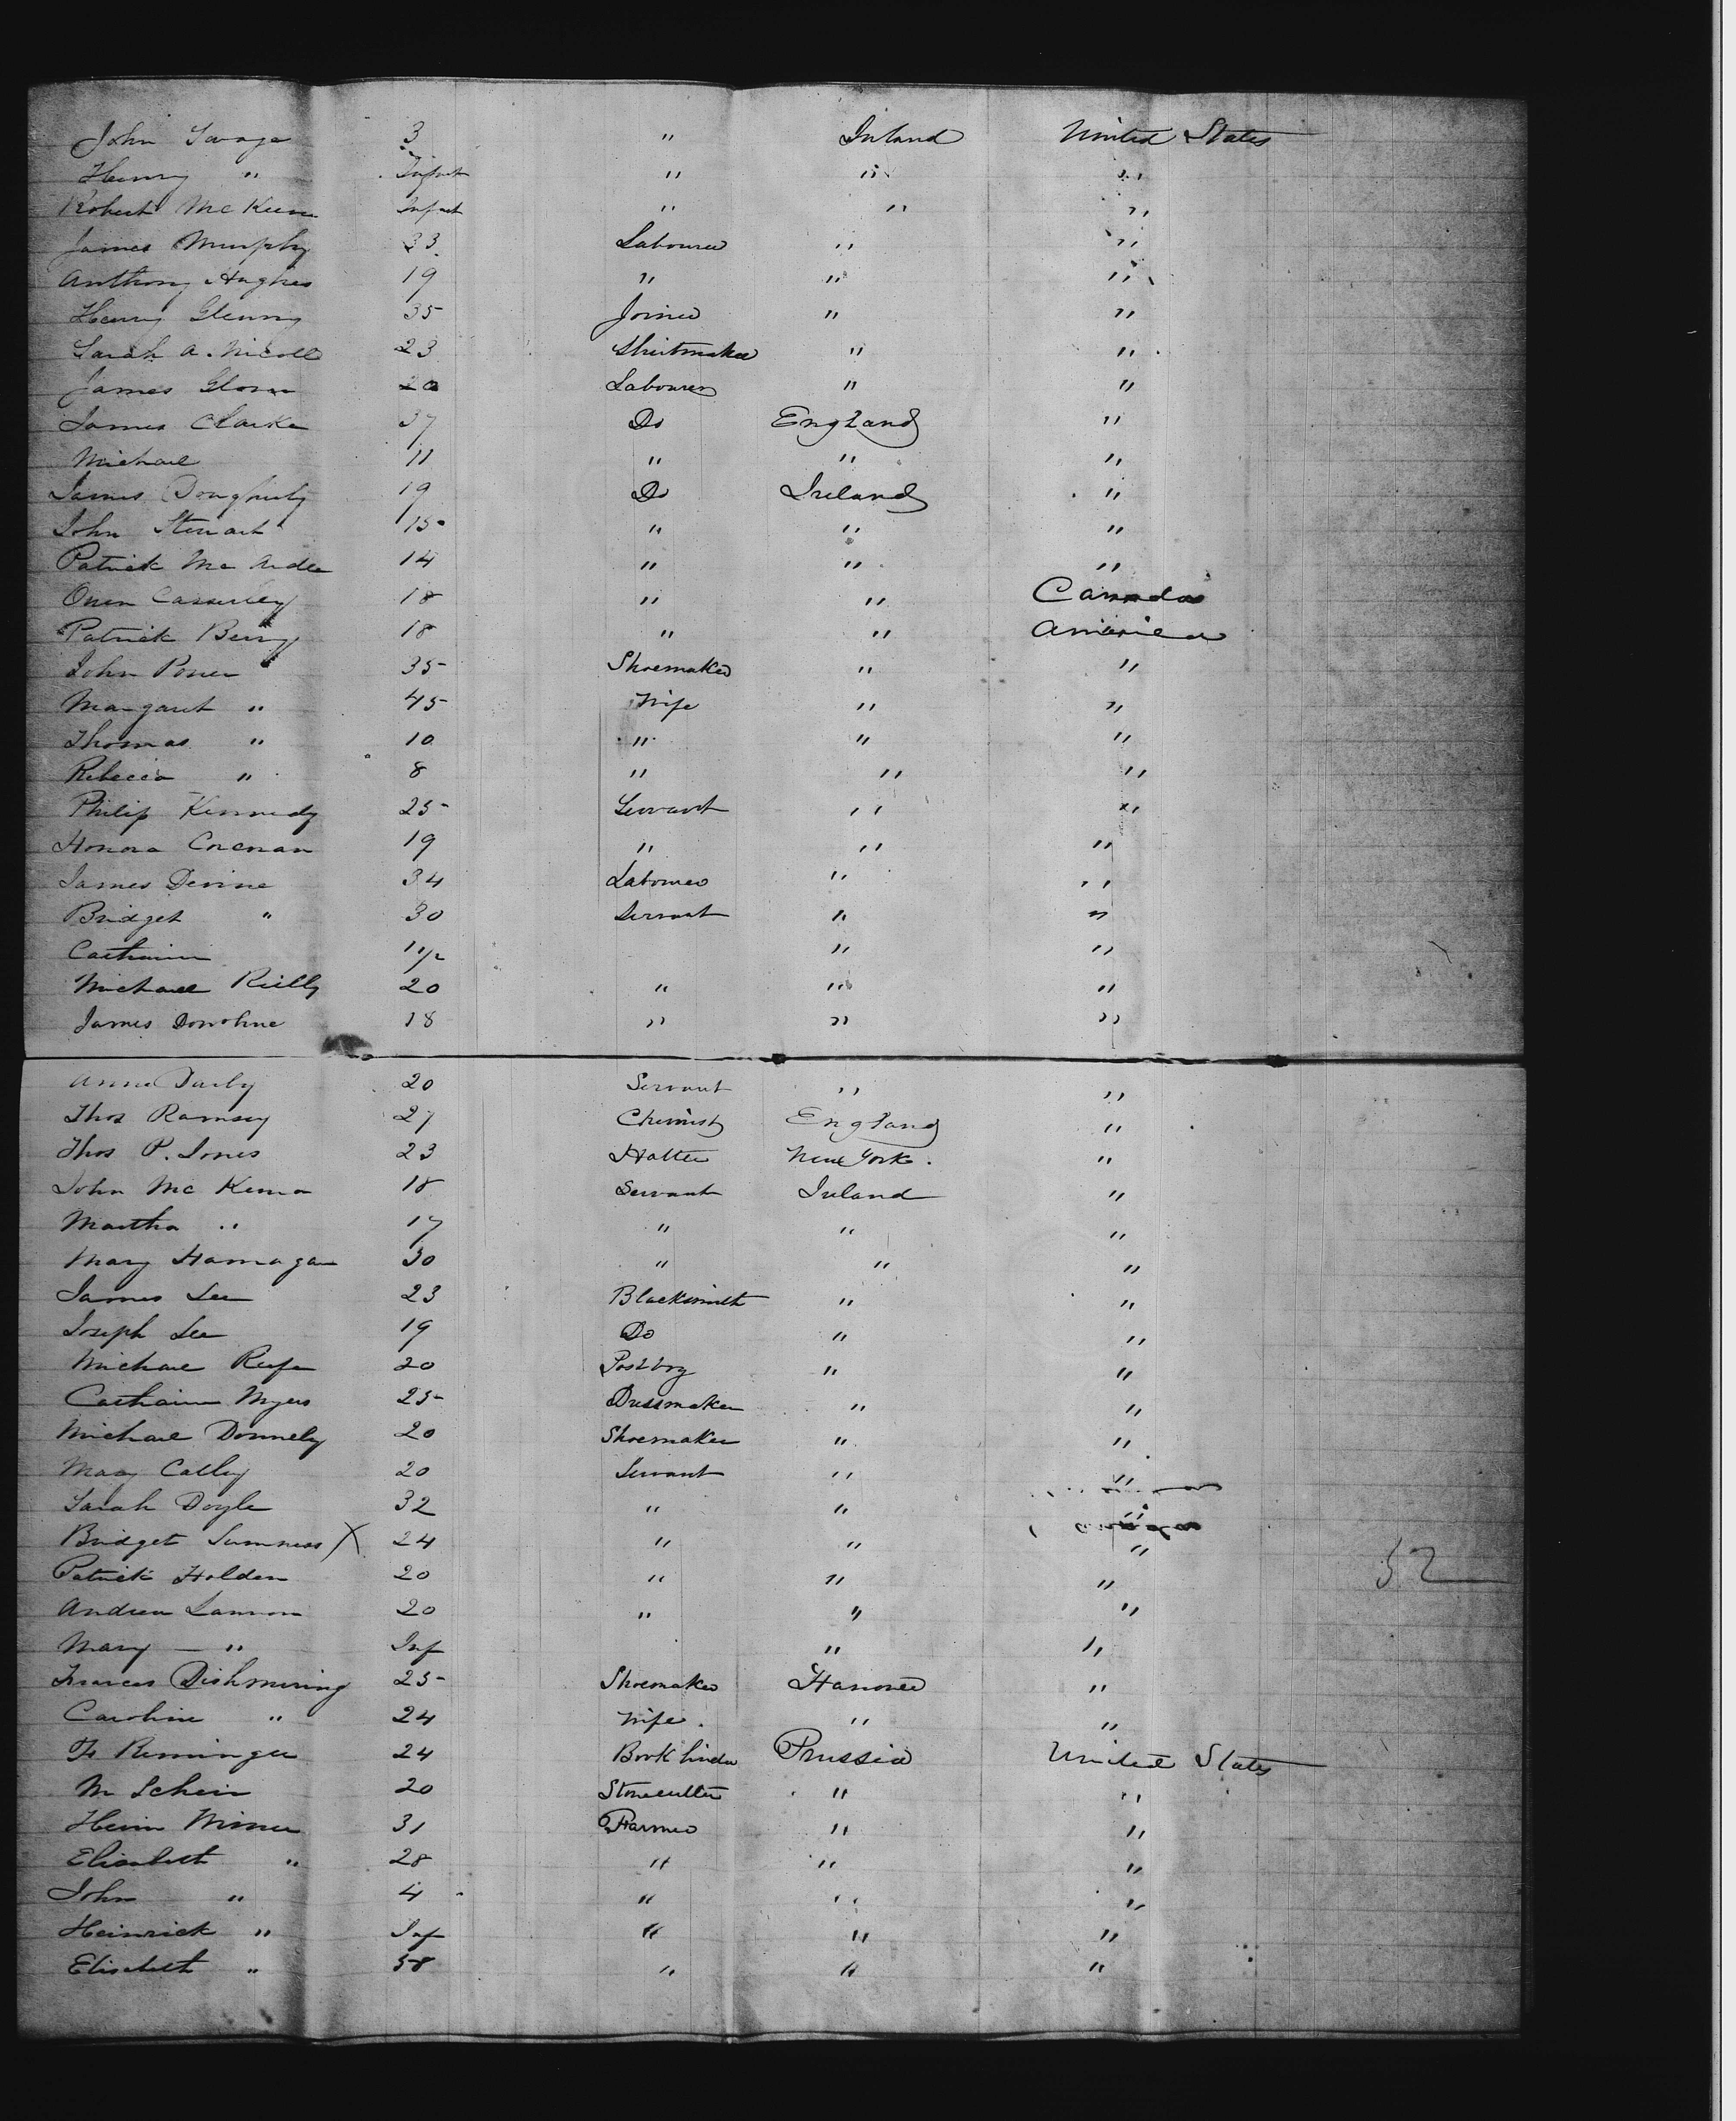 John Savage 3 " Ireland United States
Henry " Infant " " "
Robert McKeown Infant " " "
James Murphy 33 Labourer " "
Anthony Hughes 19 " " "
Henry Glenny 35 Joiner " "
Sarah A. Nicoll 23 Shirtmaker " "
James 20 Labourer " "
James Clarke 37 Do England "
Michael 11 " " "
James Dougherty 19 Do Ireland "
John Stewart 15 " " "
Patrick Mc Ardle 14 " " "
Owen Casserley 18 " " Canada
Patrick Berry 18 " " America
John Power 35 Shoemaker " "
Margaret " 45 Wife " "
Thomas " 10 " " "
Rebecca " 8 " " "
Philip Kennedy 25 Servant " "
Honora Corcoran 19 " " "
James Devine 34 Labourer " "
Bridget " 30 Servant " "
Catharine 11/2 " "
Michael Reilly 20 " " "
James Donohue 18 " " "
Anne Darby 20 Servant " "
Thos Ramsey 27 Chemist England "
Thos P. Jones 23 Hatter New York. "
John Mc Kenna 18 Servant Ireland "
Martha " 17 " " "
Mary Hannagan 30 " " "
James Lee 23 Blacksmith " "
Joseph Lee 19 Do " "
Michael 20 Postboy " "
Catharine Myers 25 Dressmaker " "
Michael Donnely 20 Shoemaker " "
Mary Calley 20 Servant " "
Sarah Doyle 32 " " "
Bridget X 24 " " "
Patrick Holden 20 " " " 52
Andrew Lannon 20 " " "
Mary — " Inf " "
Frances Dishmining 25 Shoemaker Hanover "
Caroline " 24 Wife. " "
Fr Reminger 24 Book binder Prussia United States
M Schein 20 Stonecutter " "
31 Farmer " "
Elisabeth " 28 " " "
John " 4 " " "
Heinrick " Inf " " "
Elisabeth " 58 " " "